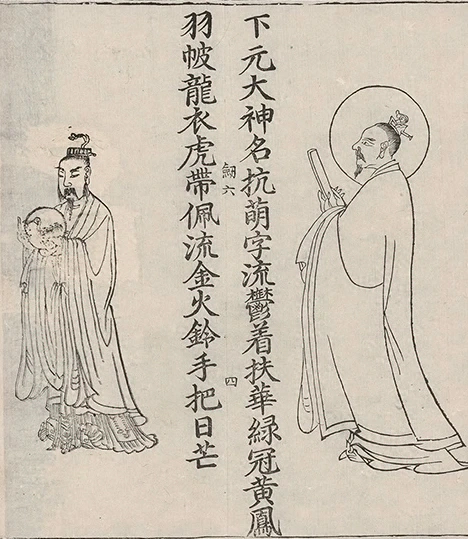 下元大神名抗萌字流鬱着扶華綠冠黃鳳
𠛴六
四
羽帔龍衣虎帶佩流金火鈴手把日芒